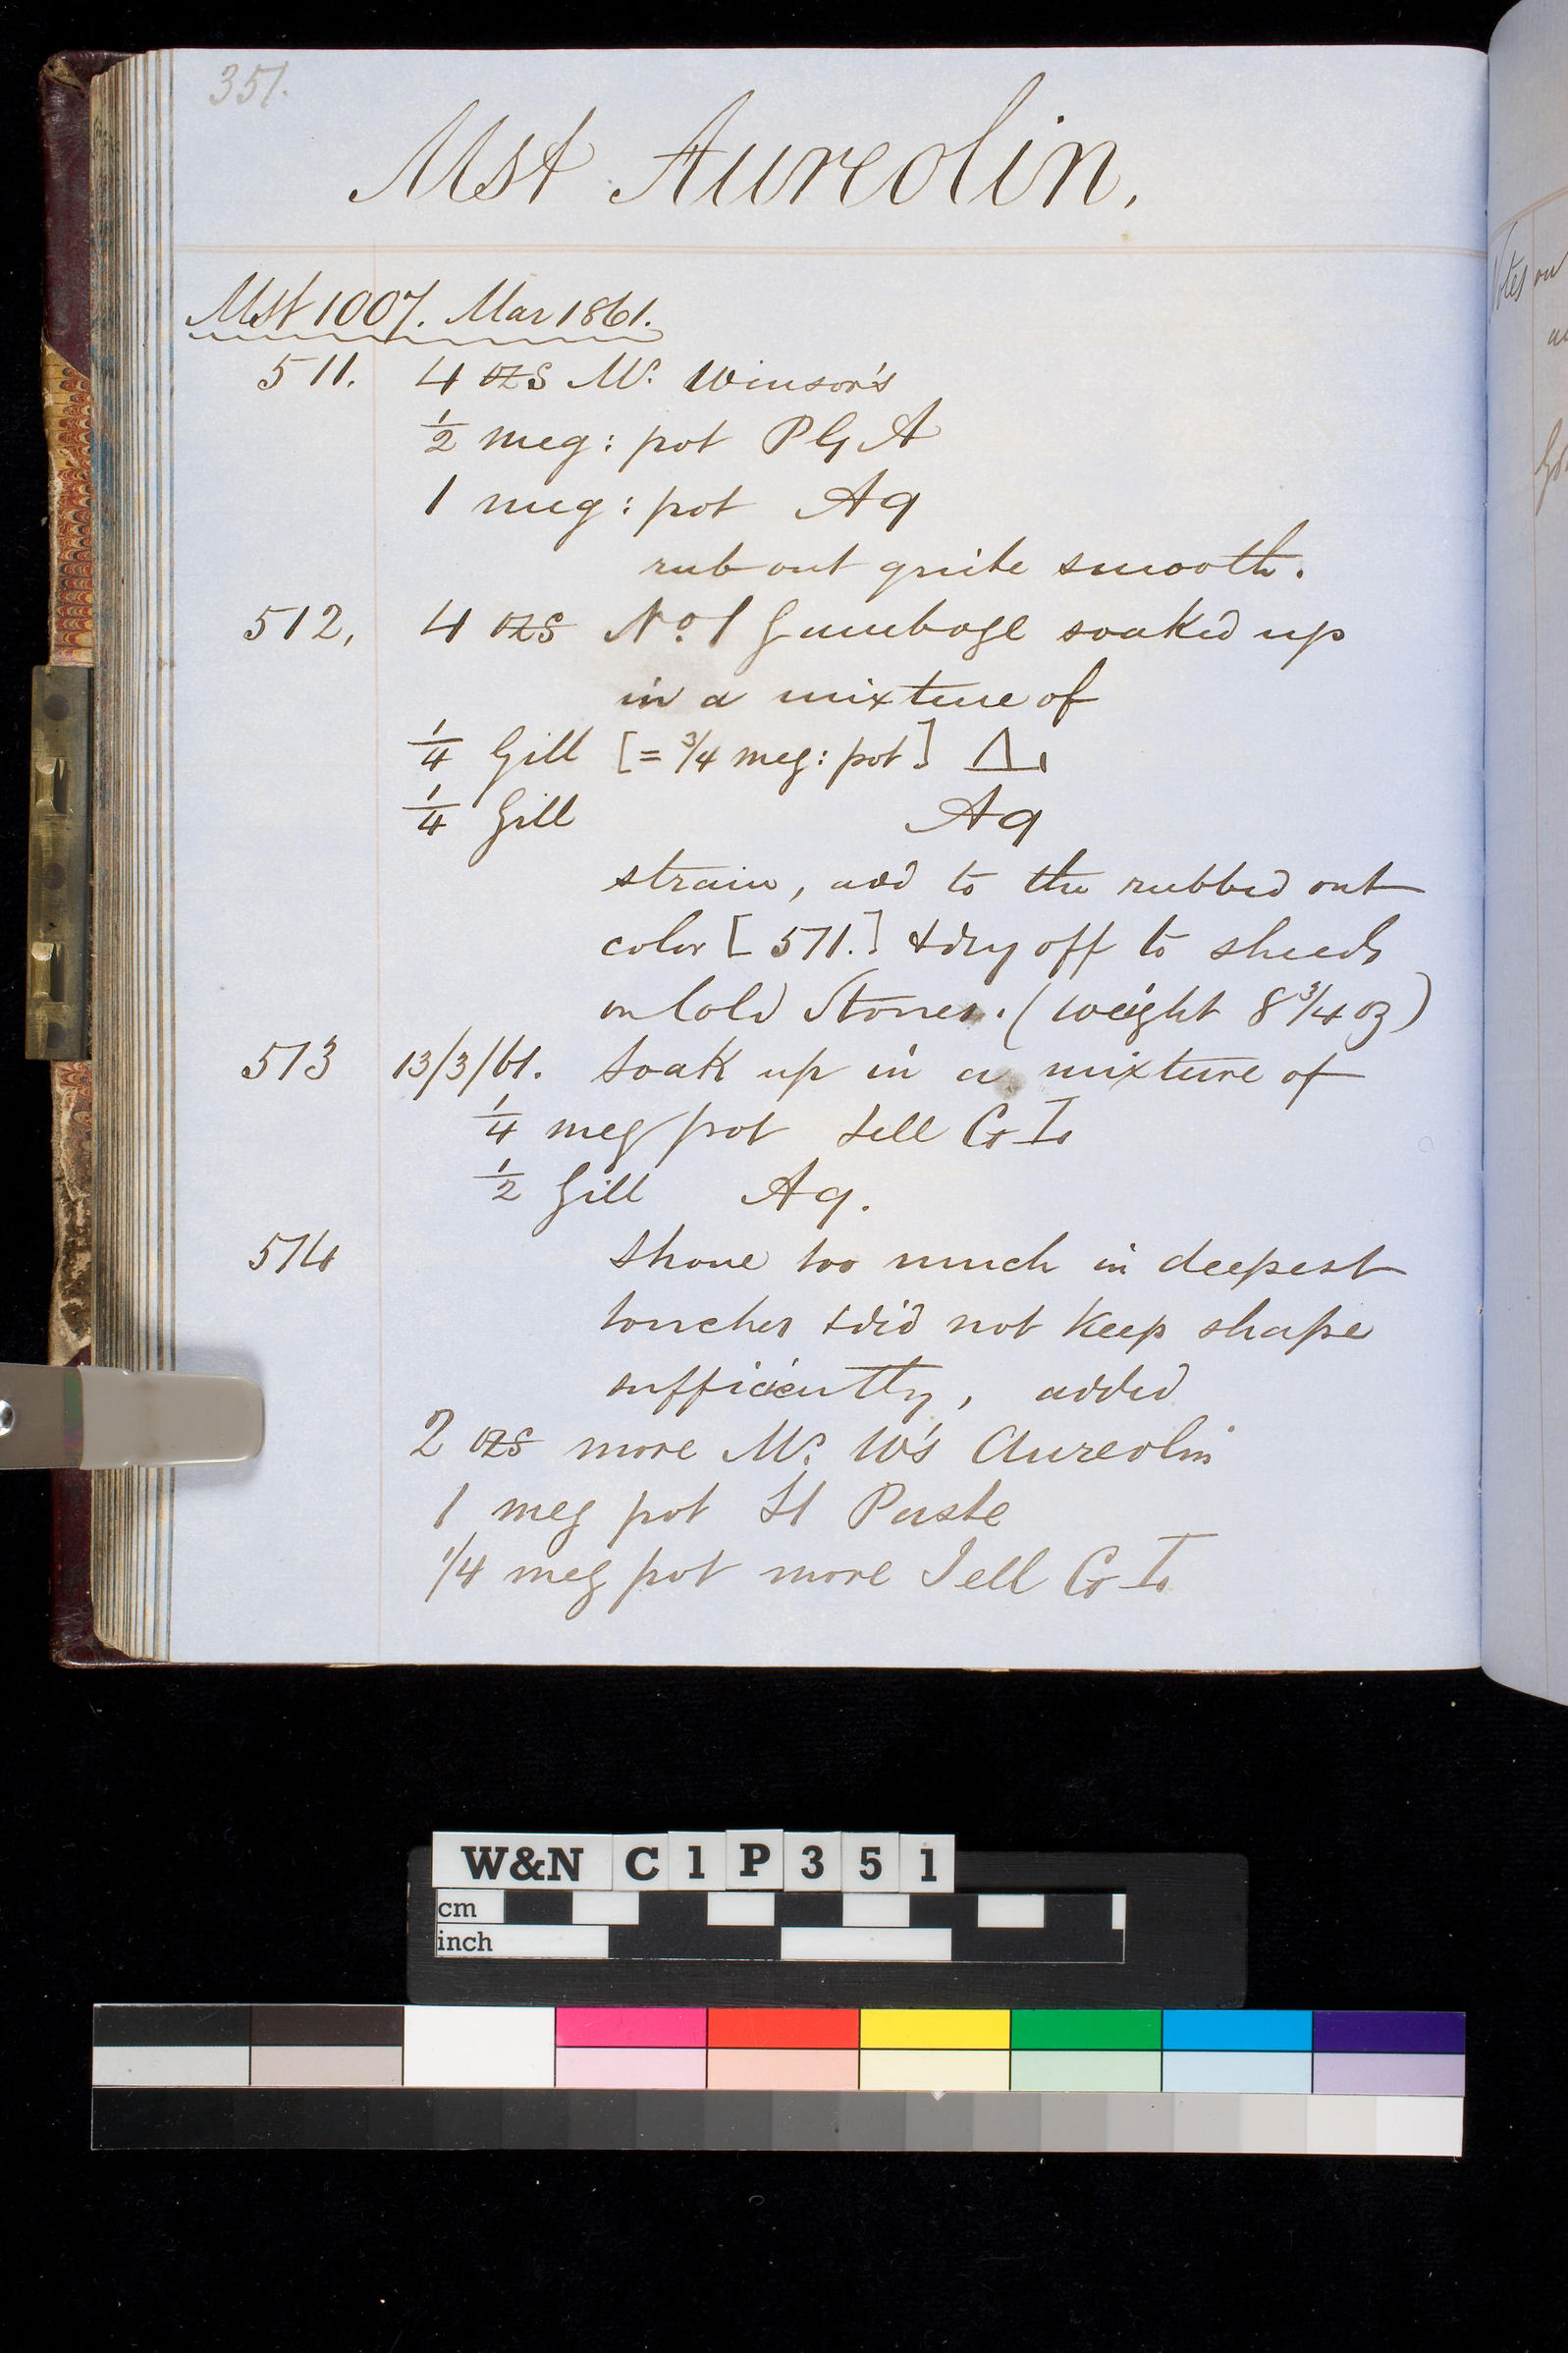 351.
Mst Aureolin.
Mst 1007. Mar 1861.
511. 4 ozs Mr. Winsor's
1/2 meg: pot PGA
1 meg: pot Aq
rub out quite smooth.
512, 4 ozs No. 1 Gumboge soaked up
in a mixture of
1/4 Gill [= 3/4 meg: pot] Δ.
1/4 Gill Aq
strain, add to the rubbed out
color [511.] & dry off to shreds
on Cold Stones. (weight 8 3/4 oz)
513 13/3/61. Soak up in a mixture of
1/4 meg pot Jell G I.
1/2 Gill Aq.
514 Shone too much in deepest
touches & did not keep shape
sufficiently, added
2 ozs more Mr. W's Aureolin
1 meg pot St Paste
1/4 meg pot more Jell G I.
Notes on
W&N C1P351
cm
inch